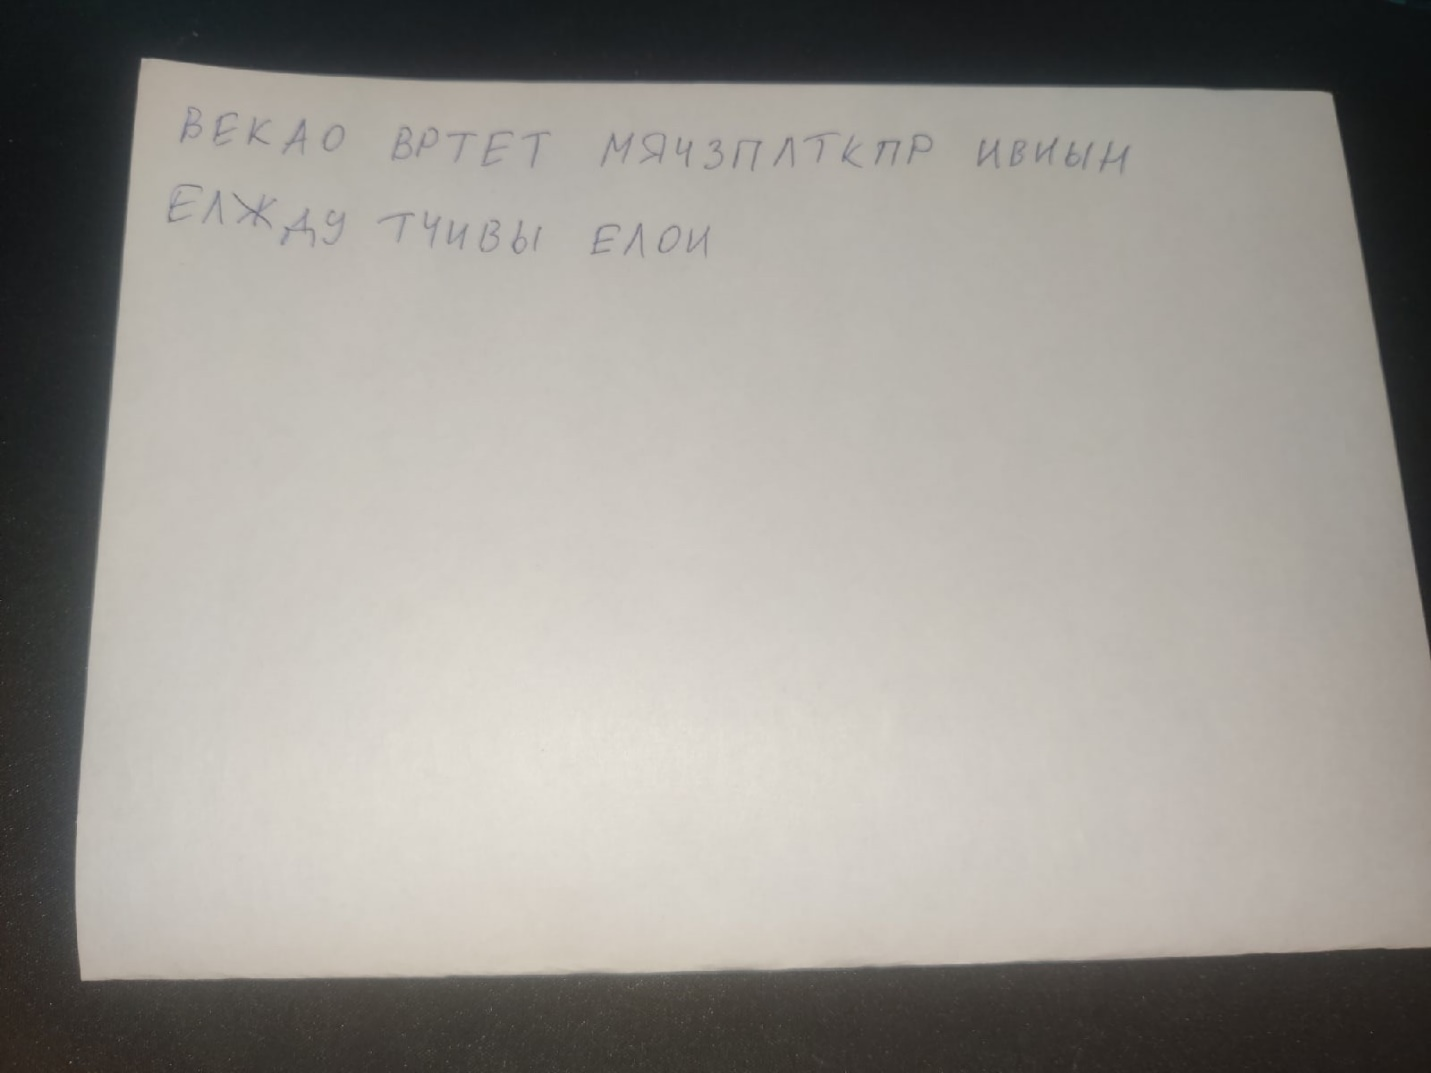 ВЕКАО ВРТЕТ МЯЧЗПЛТКПР ИВИЫН
ЕЛЖДУ ТЧИВЫ ЕЛОИ